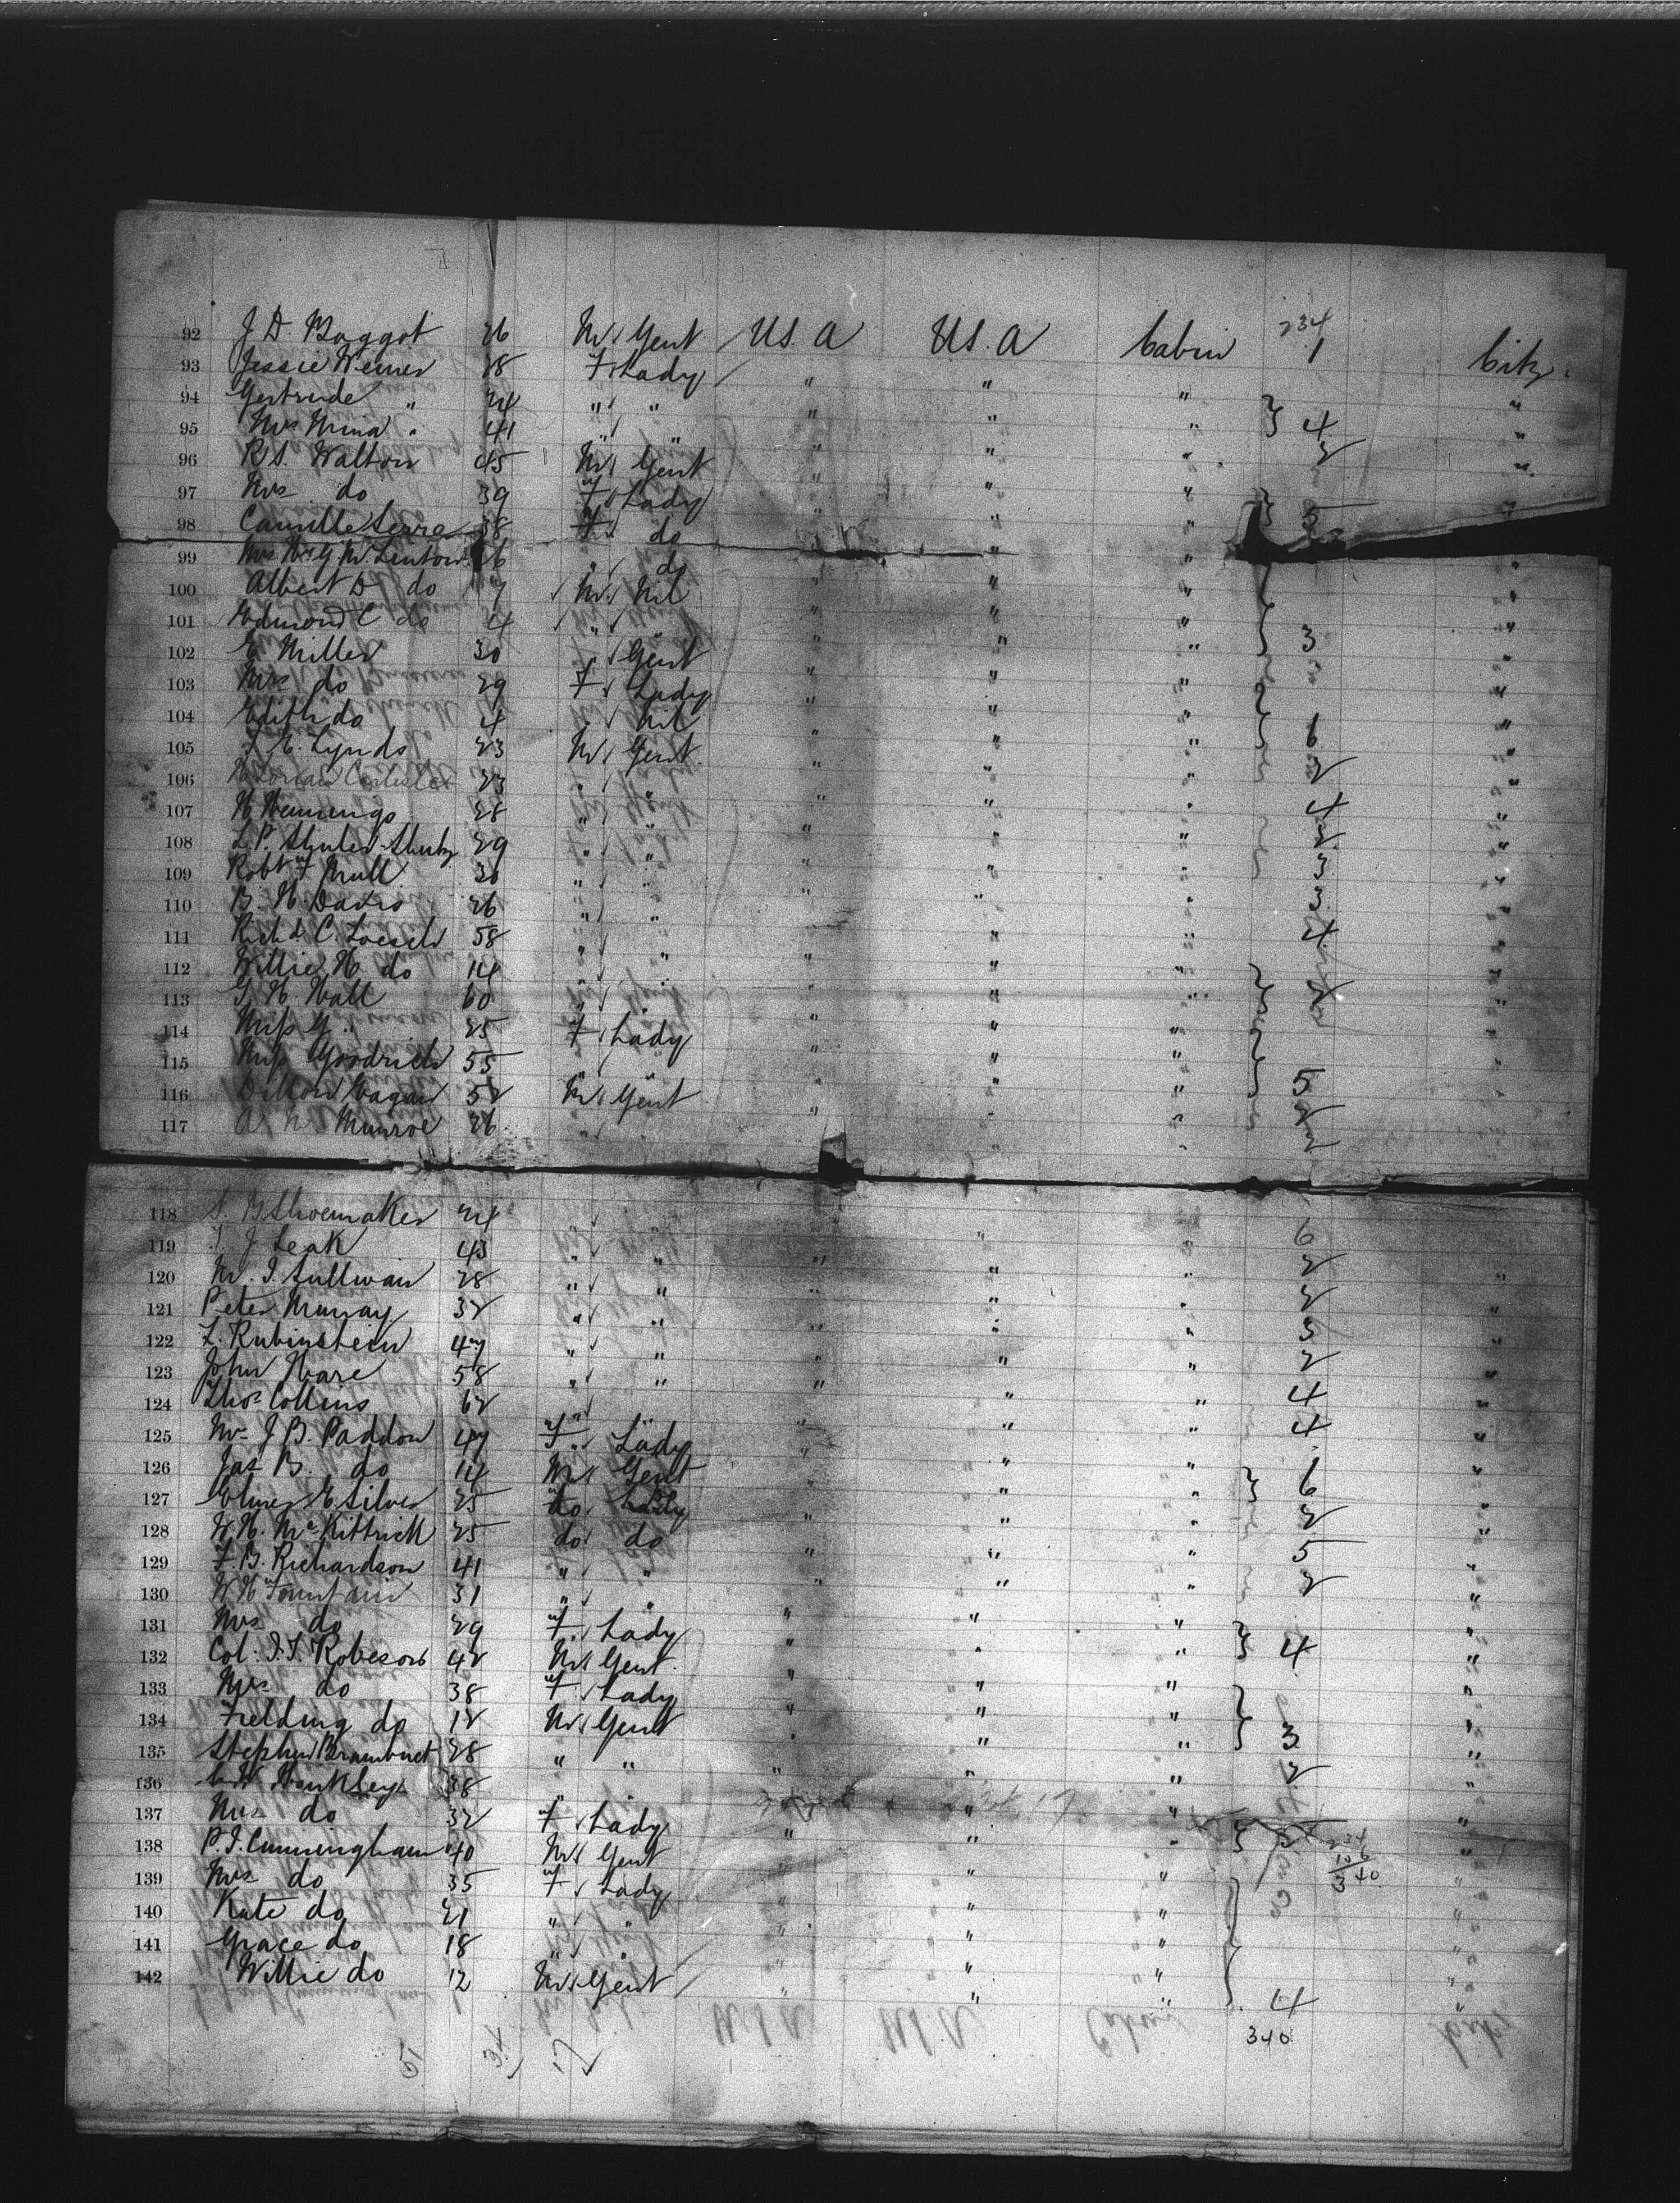 234
92 J. D. Baggot 26 M Gent U.S.A U.S.A Cabin 1 City.
93 Jessie Weiner 28 F Lady " " "
94 Gertrude " 24 " " " " " "
95 Mrs Mina " 41 " " " " " 4 "
96 R. S. Walton 45 M Gent " " " 2 "
97 Mrs do 39 F Lady " " "
98 Camille 38 F do " 5
99 Mrs 26 " do " "
100 Albert D do 7 M Nil " " " "
101 Edmond C do 4 " " " " " 3 "
102 E. Miller 30 " Gent " " "
103 Mrs do 29 F Lady " " " "
104 Edith do 4 " Nil " " " 6 "
105 E. Lynds 23 M Gent " " " 2 "
106 23 " " " " " 4 "
107 H. Hennings 28 " " " " " 2 "
108 L. P. 29 " " " " " 3 "
109 Robt F Mull 30 " " " " " 3 "
110 B. H. Davis 26 " " " " " 4 "
111 Richd C. Loesch 58 " " " " " "
112 Willie H. do 14 " " " " " 2 "
113 H. Hall 60 " " " " " "
114 Miss G " 25 F Lady " " " "
115 Miss Goodrich 55 " " " " " 5 "
116 Dillon 52 M Gent " " " 2 "
117 Munroe 26 " " " 2
118 S. B Shoemaker 24 " 6
119 J Leak 43 " " " " " 2 "
120 M. J. Sullivan 28 " " " " 2 "
121 Peter Murray 32 " " " " 3 "
122 Z. Rubinstein 47 " " " " " 2 "
123 John Hare 58 " " " " " 4 "
124 Thos Collins 62 " " " 4 "
125 Mrs J. B. Paddon 47 F Lady " " " "
126 Jas B. do 14 M Gent " " " 6 "
127 Elmer E. Silver 25 do Lady " " " 2 "
128 W. H. McKittrick 25 do do " " " 5 "
129 F. B. Richardson 41 " " " " " 2 "
130 W H Fountain 31 " " " " " "
131 Mrs do 29 F Lady " " " 4 "
132 Col. J. T. Robeson 42 M Gent " " " "
133 Mrs do 38 F Lady " " " "
134 Fielding do 12 M Gent " " " 3 "
135 Stephen 28 " " " " " 2 "
136 Hankley 38 " " " " "
137 Mrs do 32 F Lady " " " "
138 P. J. Cunningham 40 M Gent " " " "
139 Mrs do 35 F Lady " " " "
140 Kate do 21 " " " " " "
141 Grace do 18 " " " " " "
142 Willie do 12 M Gent " " " 4 "
234
106
340
340